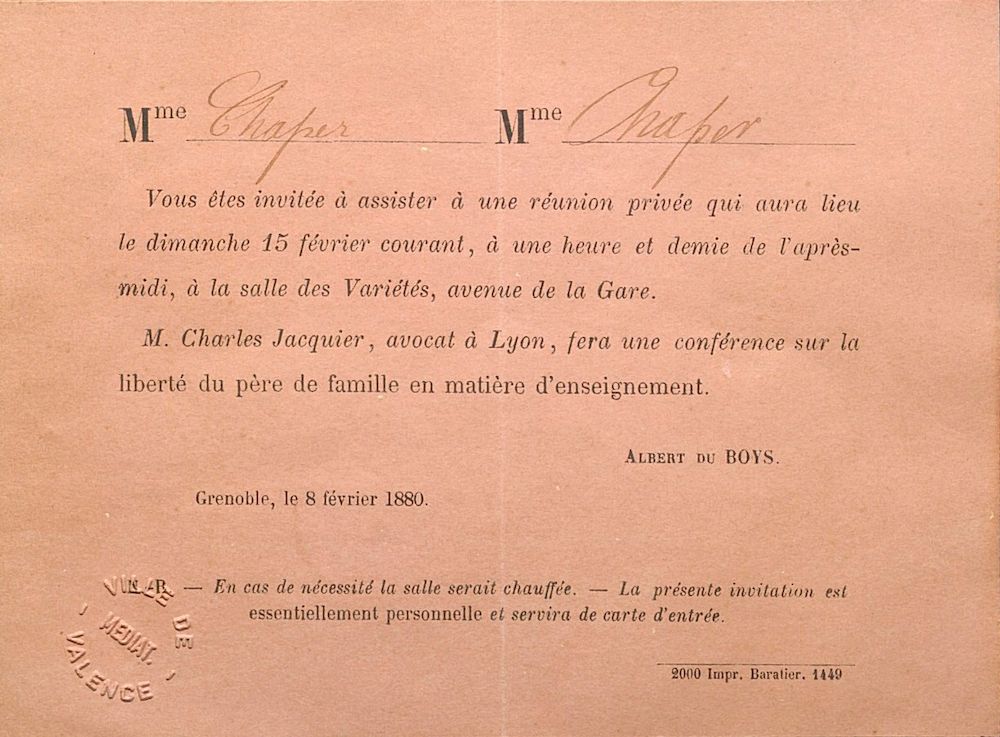 Mme Chaper Mme Chaper
Vous êtes invitée à assister à une réunion privée qui aura lieu
le dimanche 15 février courant, à une heure et demie de l'après-
midi, à la salle des Variétés, avenue de la Gare.
M. Charles Jacquier, avocat à Lyon, fera une conférence sur la
liberté du père de famille en matière d'enseignement.
ALBERT DU BOYS.
Grenoble, le 8 février 1880.
N. B. — En cas de nécessité la salle serait chauffée. — La présente invitation est
essentiellement personnelle et servira de carte d'entrée.
VILLE DE
MEDIAT.
VALENCE
2000 Impr. Baratier. 1449